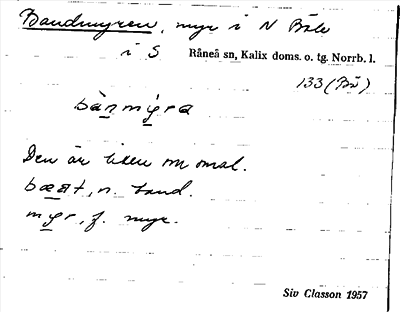 Bandmyren, myr i N Böle
i S Råneå sn, Kalix doms. o. tg. Norrb. l.
133 (Bö)
bànmỳra
Den är liten om omal.
bæat, n. band.
myr, f. myr.
Siv Classon 1957